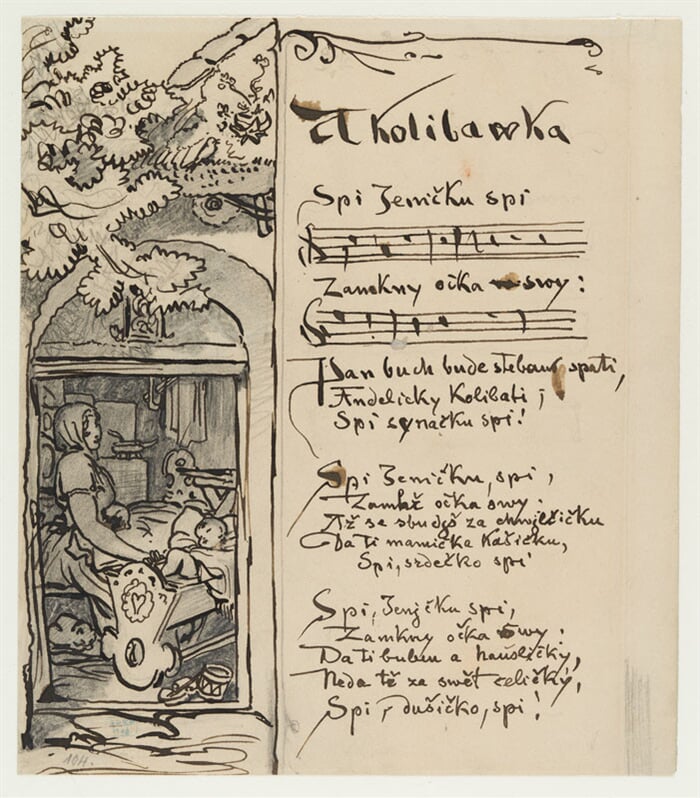 Ukolibawka
Spi Jeničku spi
Zamkny očka swy:
Pan buch bude stebau spati,
Andělicky Kolibati;
Spi synačku spi!
Spi Jeničku, spi,
Zamkž očka swy.
Až se sbudyš za chwiličičku
Da ti mamička Kašičku,
Spi, srdečko spi
Spi, Jenjčku spi,
Zamkny očka Swy:
Da ti buben a hausličky,
Neda tě za swět celičky,
Spi, dušičko, spi!
104.